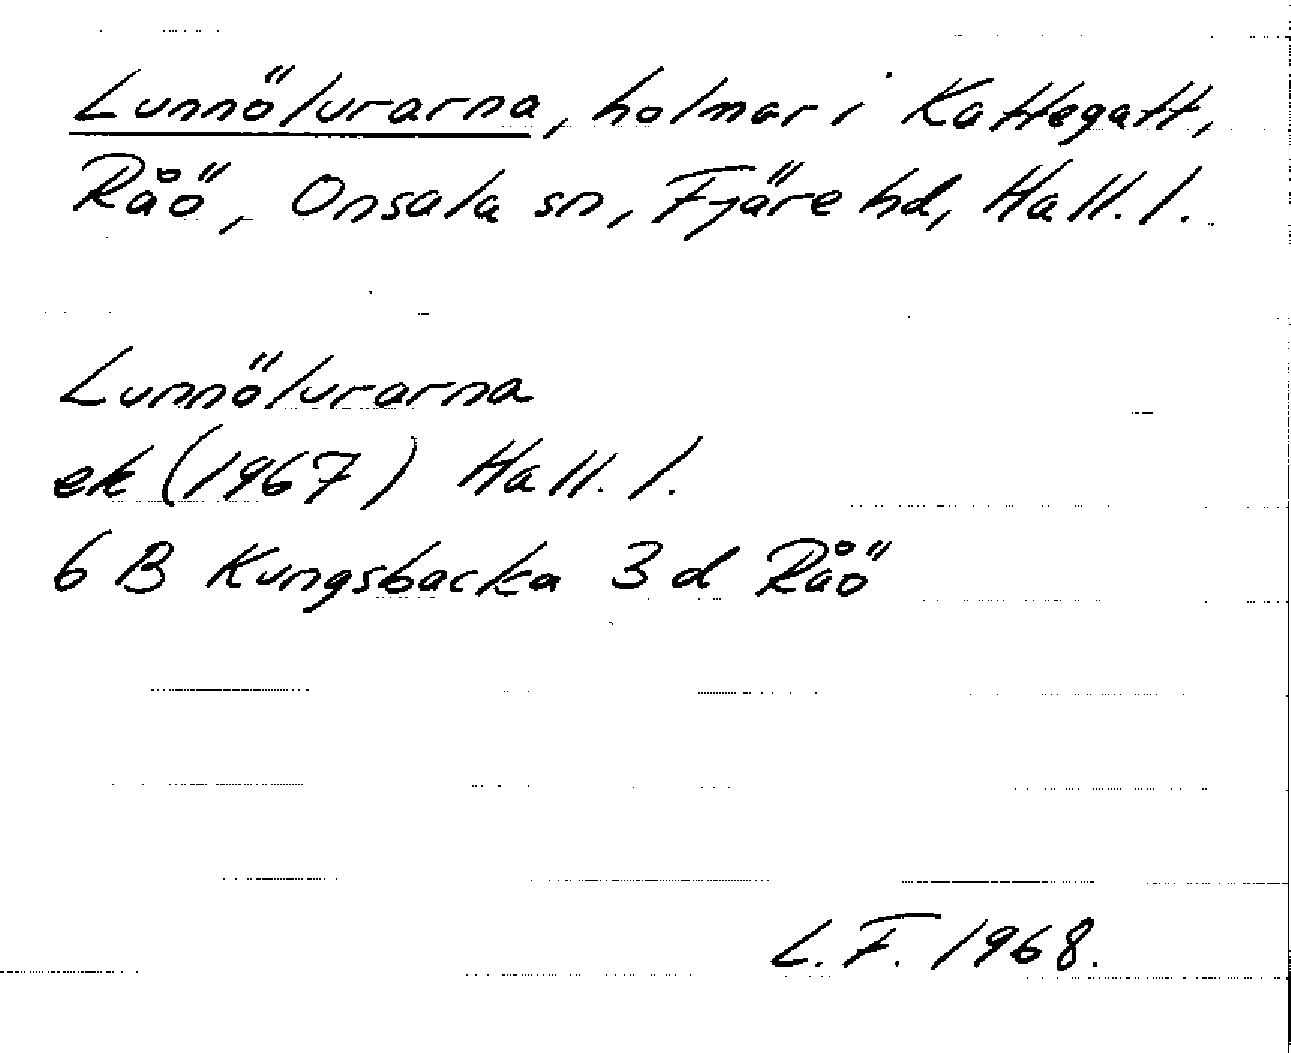 Lunnölurarna, holmar i Kattegatt,
Råö, Onsala sn, Fjäre hd, Hall. l.
Lunnölurarna
ek (1967) Hall. l.
6 B Kungsbacka 3 d Råö
L.F. 1968.